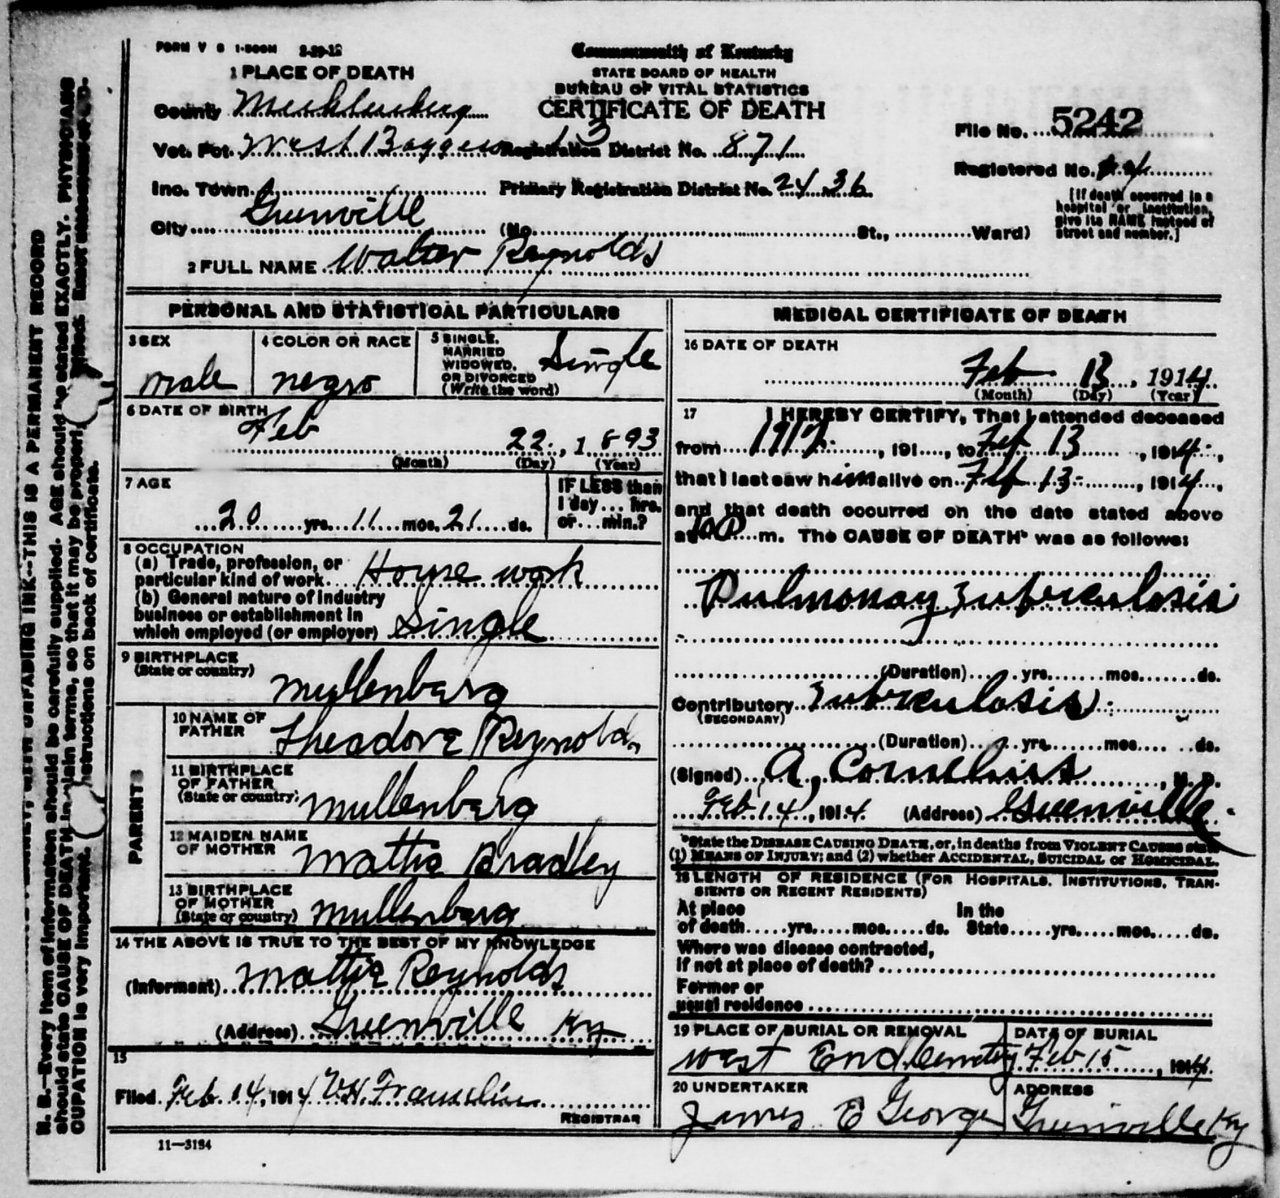 FORM V S 1-500M 2-29-12
Commonwealth of Kentucky
STATE BOARD OF HEALTH
BUREAU OF VITAL STATISTICS
CERTIFICATE OF DEATH
1 PLACE OF DEATH
County
Vot. Pct. West Registration District No. 871
Inc. Town Primary Registration District No. 2436
City Greenville (No. St., Ward)
2 FULL NAME Walter Reynolds
File No. 5242
Registered No.
[If death occurred in a hospital or institution, give its NAME instead of street and number.]
PERSONAL AND STATISTICAL PARTICULARS
3 SEX
male
4 COLOR OR RACE
negro
5 SINGLE, MARRIED WIDOWED, OR DIVORCED (Write the word)
Single
6 DATE OF BIRTH
Feb 22, 1893
(Month) (Day) (Year)
7 AGE
20 yrs. 11 mos. 21 ds.
IF LESS than 1 day ... hrs. or ... min.?
8 OCCUPATION
(a) Trade, profession, or
particular kind of work House work
(b) General nature of industry
business or establishment in
which employed (or employer) Single
9 BIRTHPLACE
(State or country) Mullenbarg
PARENTS
10 NAME OF FATHER Theadore Reynolds
11 BIRTHPLACE OF FATHER (State or country) Mullenbarg
12 MAIDEN NAME OF MOTHER Mattie Bradley
13 BIRTHPLACE OF MOTHER (State or country) Mullenbarg
14 THE ABOVE IS TRUE TO THE BEST OF MY KNOWLEDGE
(Informant) Mattie Reynolds
(Address) Greenville Ky
15
Filed Feb 14, 1914
REGISTRAR
11-3184
MEDICAL CERTIFICATE OF DEATH
16 DATE OF DEATH
Feb 13, 1914
(Month) (Day) (Year)
17 I HEREBY CERTIFY, That I attended deceased
from 1912, 191, to Feb 13, 1914,
that I last saw him alive on Feb 13, 1914,
and that death occurred on the date stated above
at 10 P m. The CAUSE OF DEATH* was as follows:
Pulmonay Tuberculosis
(Duration) yrs. mos. ds.
Contributory Tuberculosis
(SECONDARY)
(Duration) yrs. mos. ds.
(Signed) A. Cornelius, M. D.
Feb 14, 1914. (Address) Greenville
*State the DISEASE CAUSING DEATH, or, in deaths from VIOLENT CAUSES state
(1) MEANS OF INJURY; and (2) whether ACCIDENTAL, SUICIDAL or HOMICIDAL.
18 LENGTH OF RESIDENCE (FOR HOSPITALS, INSTITUTIONS, TRAN-
SIENTS OR RECENT RESIDENTS)
At place In the
of death yrs. mos. ds. State yrs. mos. ds.
Where was disease contracted,
if not at place of death?
Former or
usual residence
19 PLACE OF BURIAL OR REMOVAL
West End Cemetery
DATE OF BURIAL
Feb 15, 1914
20 UNDERTAKER
James E George
ADDRESS
Greenville Ky
N. B.--Every item of information should be carefully supplied. AGE should be stated EXACTLY. PHYSICIANS
should state CAUSE OF DEATH in plain terms, so that it may be properly
CUPATION is very important. instructions on back of certificate.
UNFADING INK--THIS IS A PERMANENT RECORD